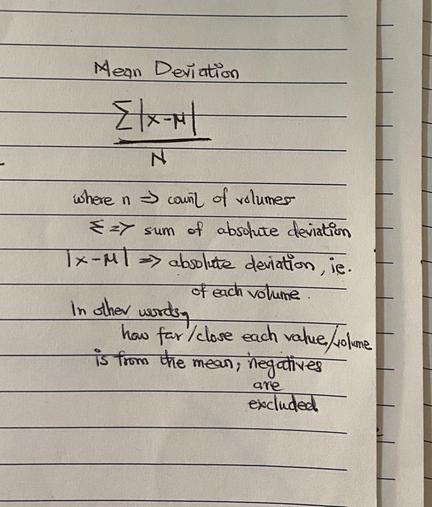 Mean Deviation
Σ|x-μ|
N
where n => count of volumes
Σ => sum of absolute deviation
|x-μ| => absolute deviation, ie.
of each volume.
In other words,
how far/close each value/volume
is from the mean; negatives
are
excluded